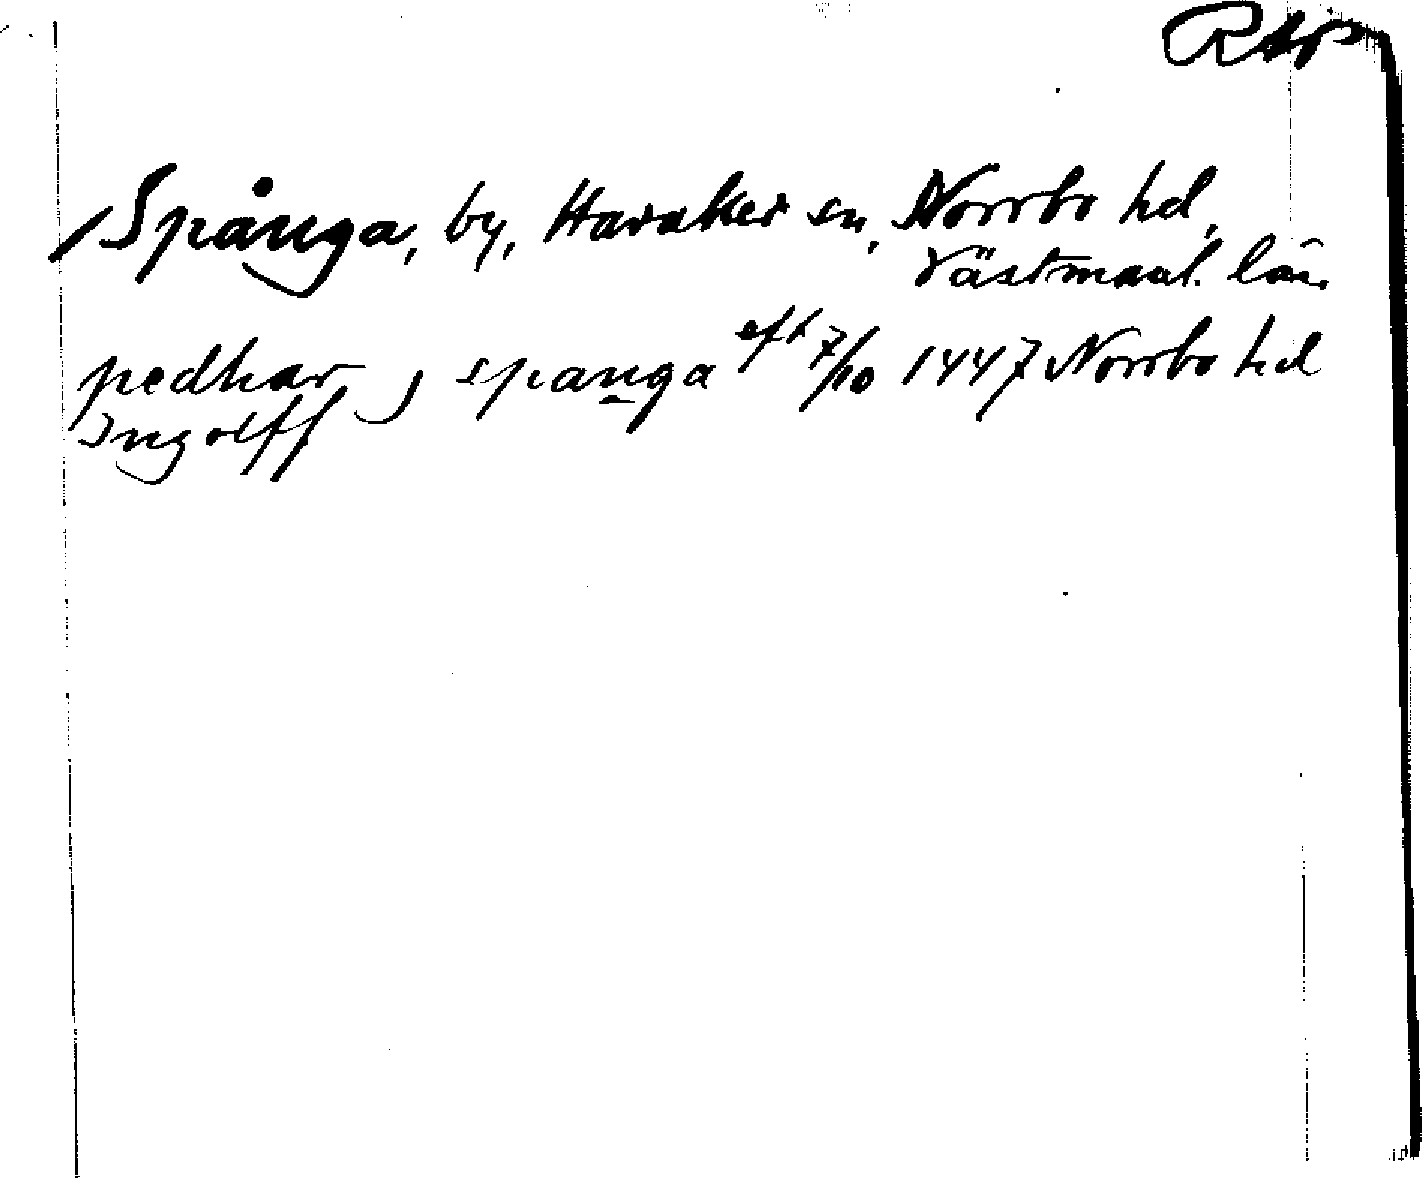 RAp
Spånga, by, Haraker sn, Norrbo hd,
Västmanl. län.
pedhar j spanga eft 7/10 1447 Norrbo hd
Ingolff